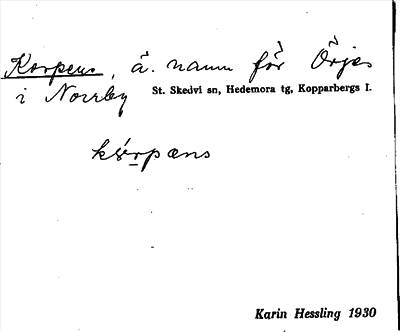 Korpens, ä. namn för Örjes
i Norrby St. Skedvi sn, Hedemora tg, Kopparbergs l.
kórpæns
Karin Hessling 1930